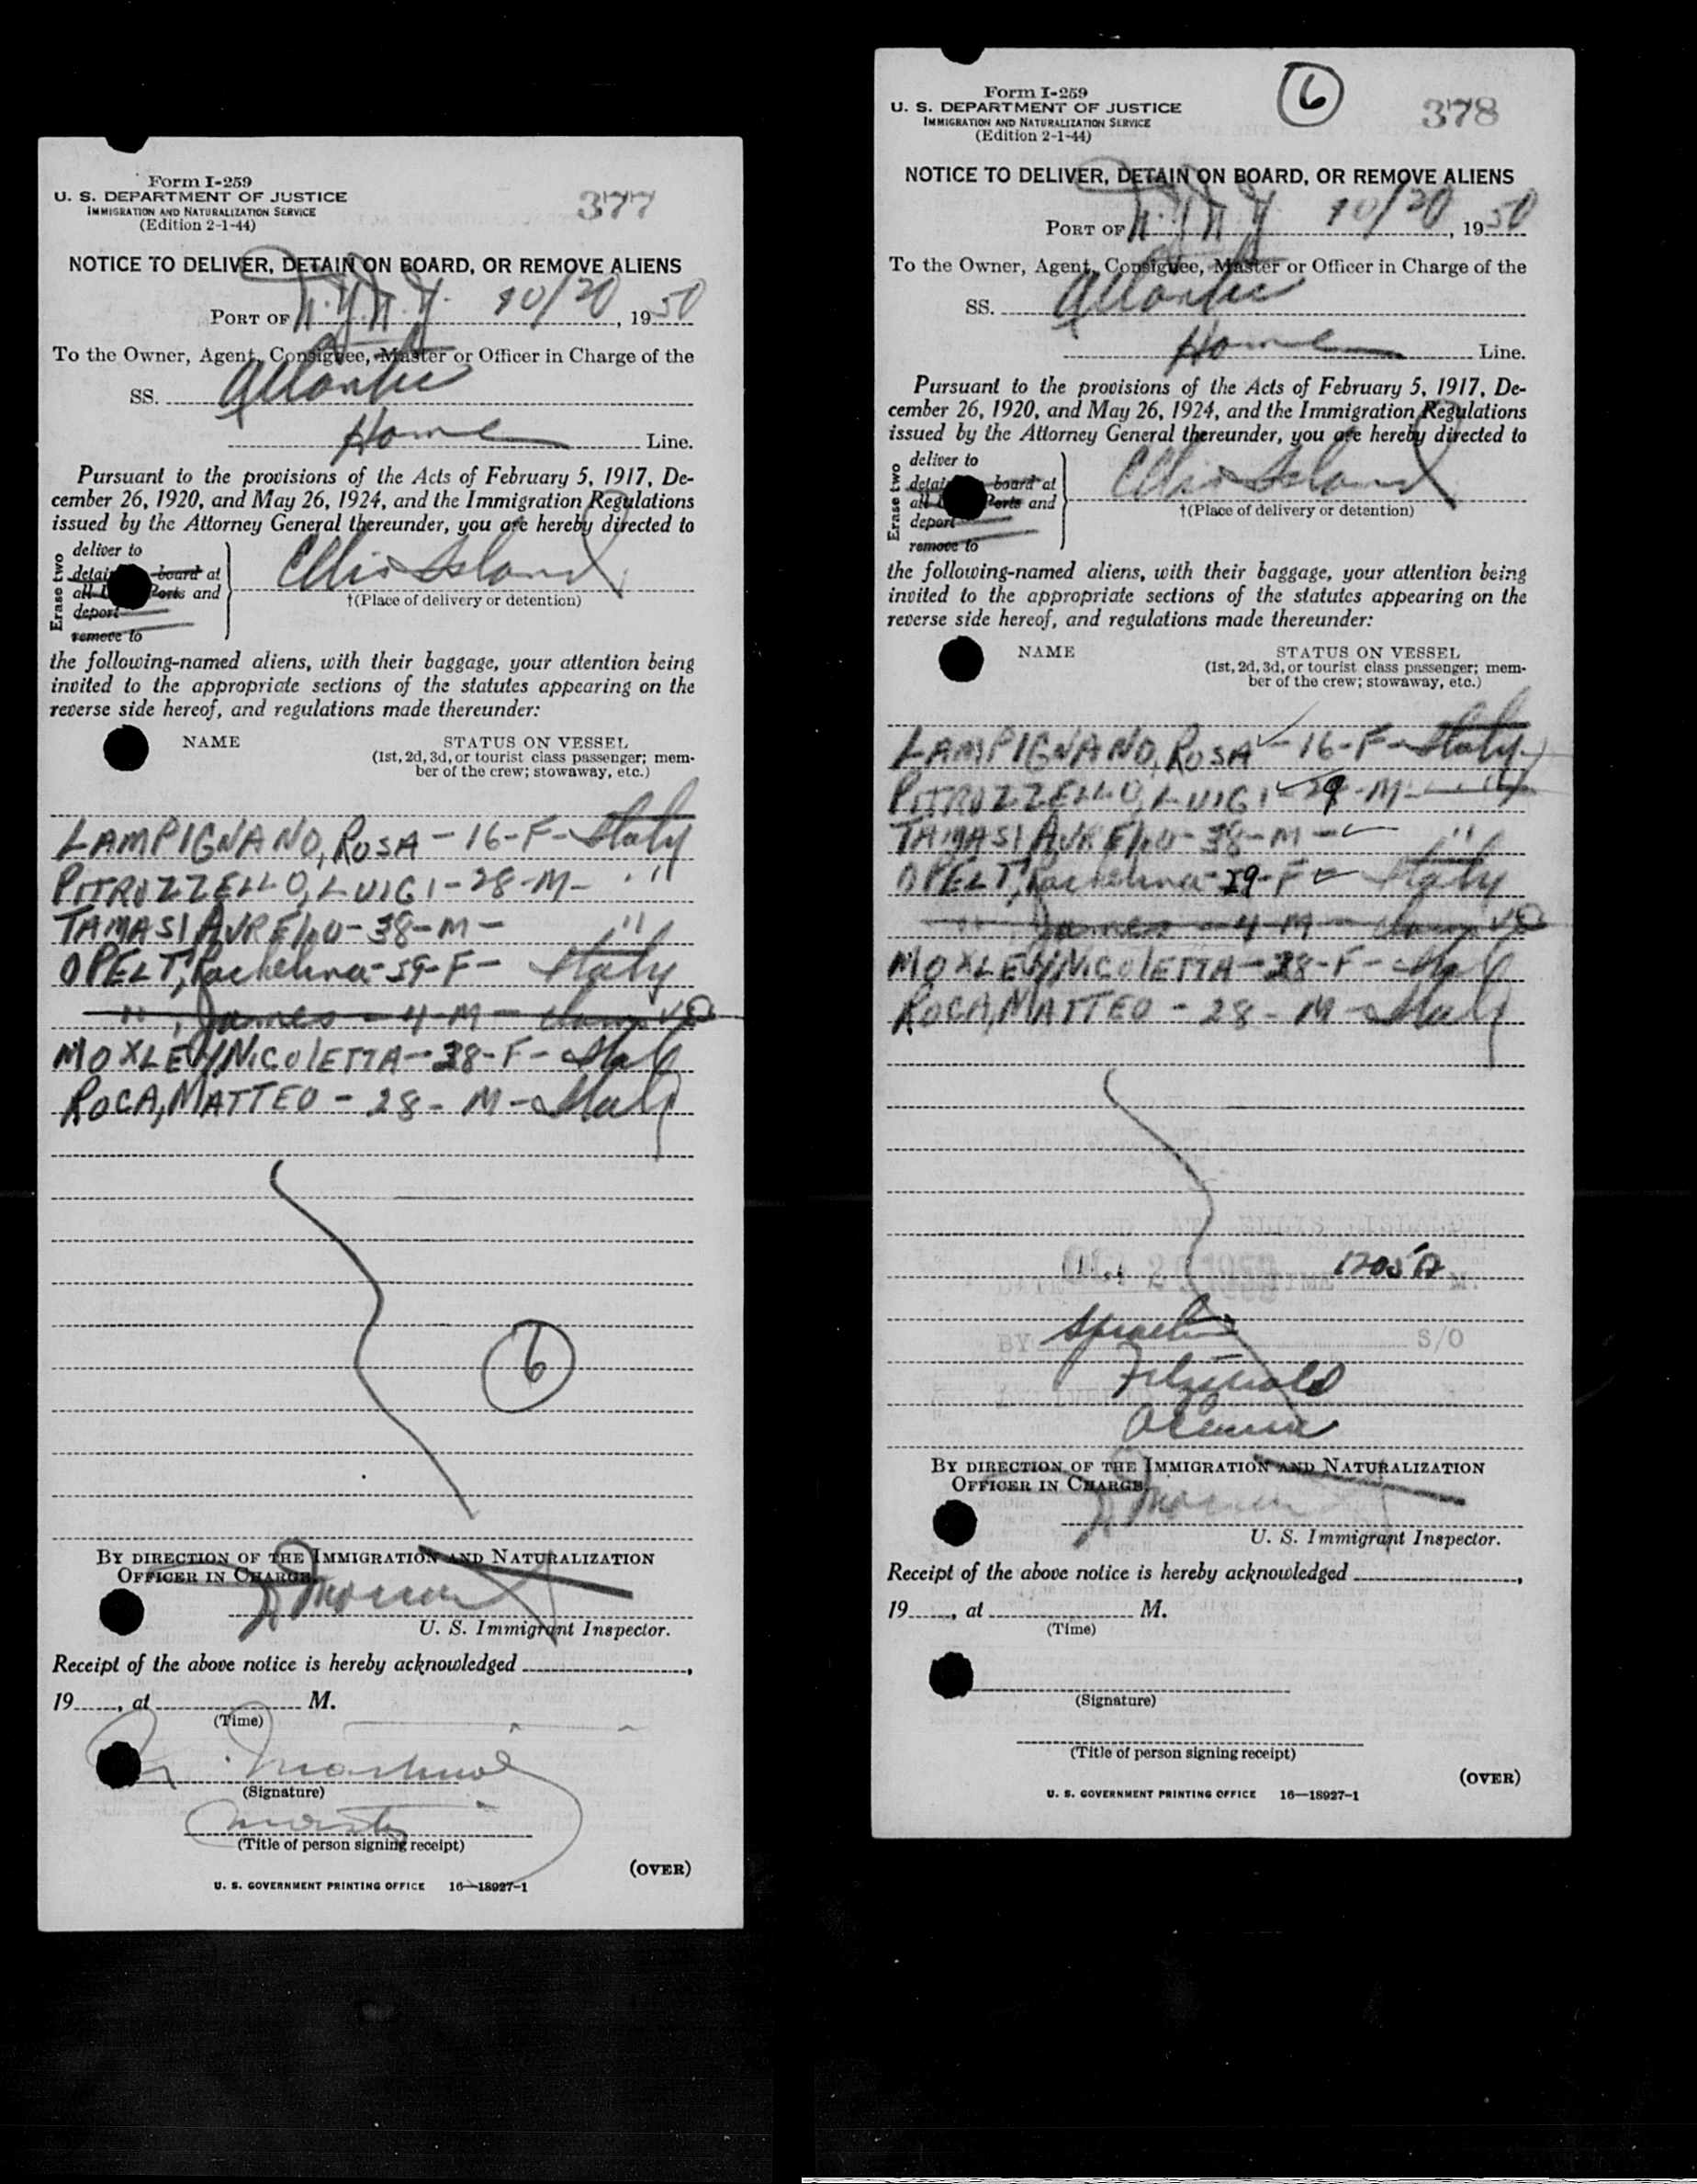 Form I-259
U. S. DEPARTMENT OF JUSTICE
IMMIGRATION AND NATURALIZATION SERVICE
(Edition 2-1-44)
377
NOTICE TO DELIVER, DETAIN ON BOARD, OR REMOVE ALIENS
PORT OF N.Y.N.Y. 10/20, 1950
To the Owner, Agent, Consignee, Master or Officer in Charge of the
SS. Atlantic
Home Line.
Pursuant to the provisions of the Acts of February 5, 1917, De-
cember 26, 1920, and May 26, 1924, and the Immigration Regulations
issued by the Attorney General thereunder, you are hereby directed to
Erase two
deliver to
board at
Ports and
deport
remove to
Ellis Island
†(Place of delivery or detention)
the following-named aliens, with their baggage, your attention being
invited to the appropriate sections of the statutes appearing on the
reverse side hereof, and regulations made thereunder:
NAME STATUS ON VESSEL
(1st, 2d, 3d, or tourist class passenger; mem-
ber of the crew; stowaway, etc.)
LAMPIGNANO, ROSA - 16 - F - Italy
PITROZZELLO, LUIGI - 28 - M - "
TAMASI AURELIO - 38 - M - "
OPELT, - F - Italy
" , James - 4 - M -
MOXLEY, NICOLETTA - 38 - F - Italy
ROCA, MATTEO - 28 - M - Italy
6
BY DIRECTION OF THE IMMIGRATION AND NATURALIZATION
OFFICER IN CHARGE.
U. S. Immigrant Inspector.
Receipt of the above notice is hereby acknowledged ,
19 , at M.
(Time)
(Signature)
(Title of person signing receipt)
(OVER)
U. S. GOVERNMENT PRINTING OFFICE 16—18927-1
Form I-259
U. S. DEPARTMENT OF JUSTICE
IMMIGRATION AND NATURALIZATION SERVICE
(Edition 2-1-44)
6
378
NOTICE TO DELIVER, DETAIN ON BOARD, OR REMOVE ALIENS
PORT OF N.Y.N.Y. 10/20, 1950
To the Owner, Agent, Consignee, Master or Officer in Charge of the
SS. Atlantic
Home Line.
Pursuant to the provisions of the Acts of February 5, 1917, De-
cember 26, 1920, and May 26, 1924, and the Immigration Regulations
issued by the Attorney General thereunder, you are hereby directed to
Erase two
deliver to
board at
Ports and
deport
remove to
Ellis Island
†(Place of delivery or detention)
the following-named aliens, with their baggage, your attention being
invited to the appropriate sections of the statutes appearing on the
reverse side hereof, and regulations made thereunder:
NAME STATUS ON VESSEL
(1st, 2d, 3d, or tourist class passenger; mem-
ber of the crew; stowaway, etc.)
LAMPIGNANO, ROSA - 16 - F - Italy
PITROZZELLO, LUIGI - 29 - M - "
TAMASI AURELIO - 38 - M - "
OPELT, - F - Italy
" , James - 4 - M -
MOXLEY, NICOLETTA - 38 - F - Italy
ROCA, MATTEO - 28 - M - Italy
1205A
BY S/O
BY DIRECTION OF THE IMMIGRATION AND NATURALIZATION
OFFICER IN CHARGE.
U. S. Immigrant Inspector.
Receipt of the above notice is hereby acknowledged ,
19 , at M.
(Time)
(Signature)
(Title of person signing receipt)
(OVER)
U. S. GOVERNMENT PRINTING OFFICE 16—18927-1